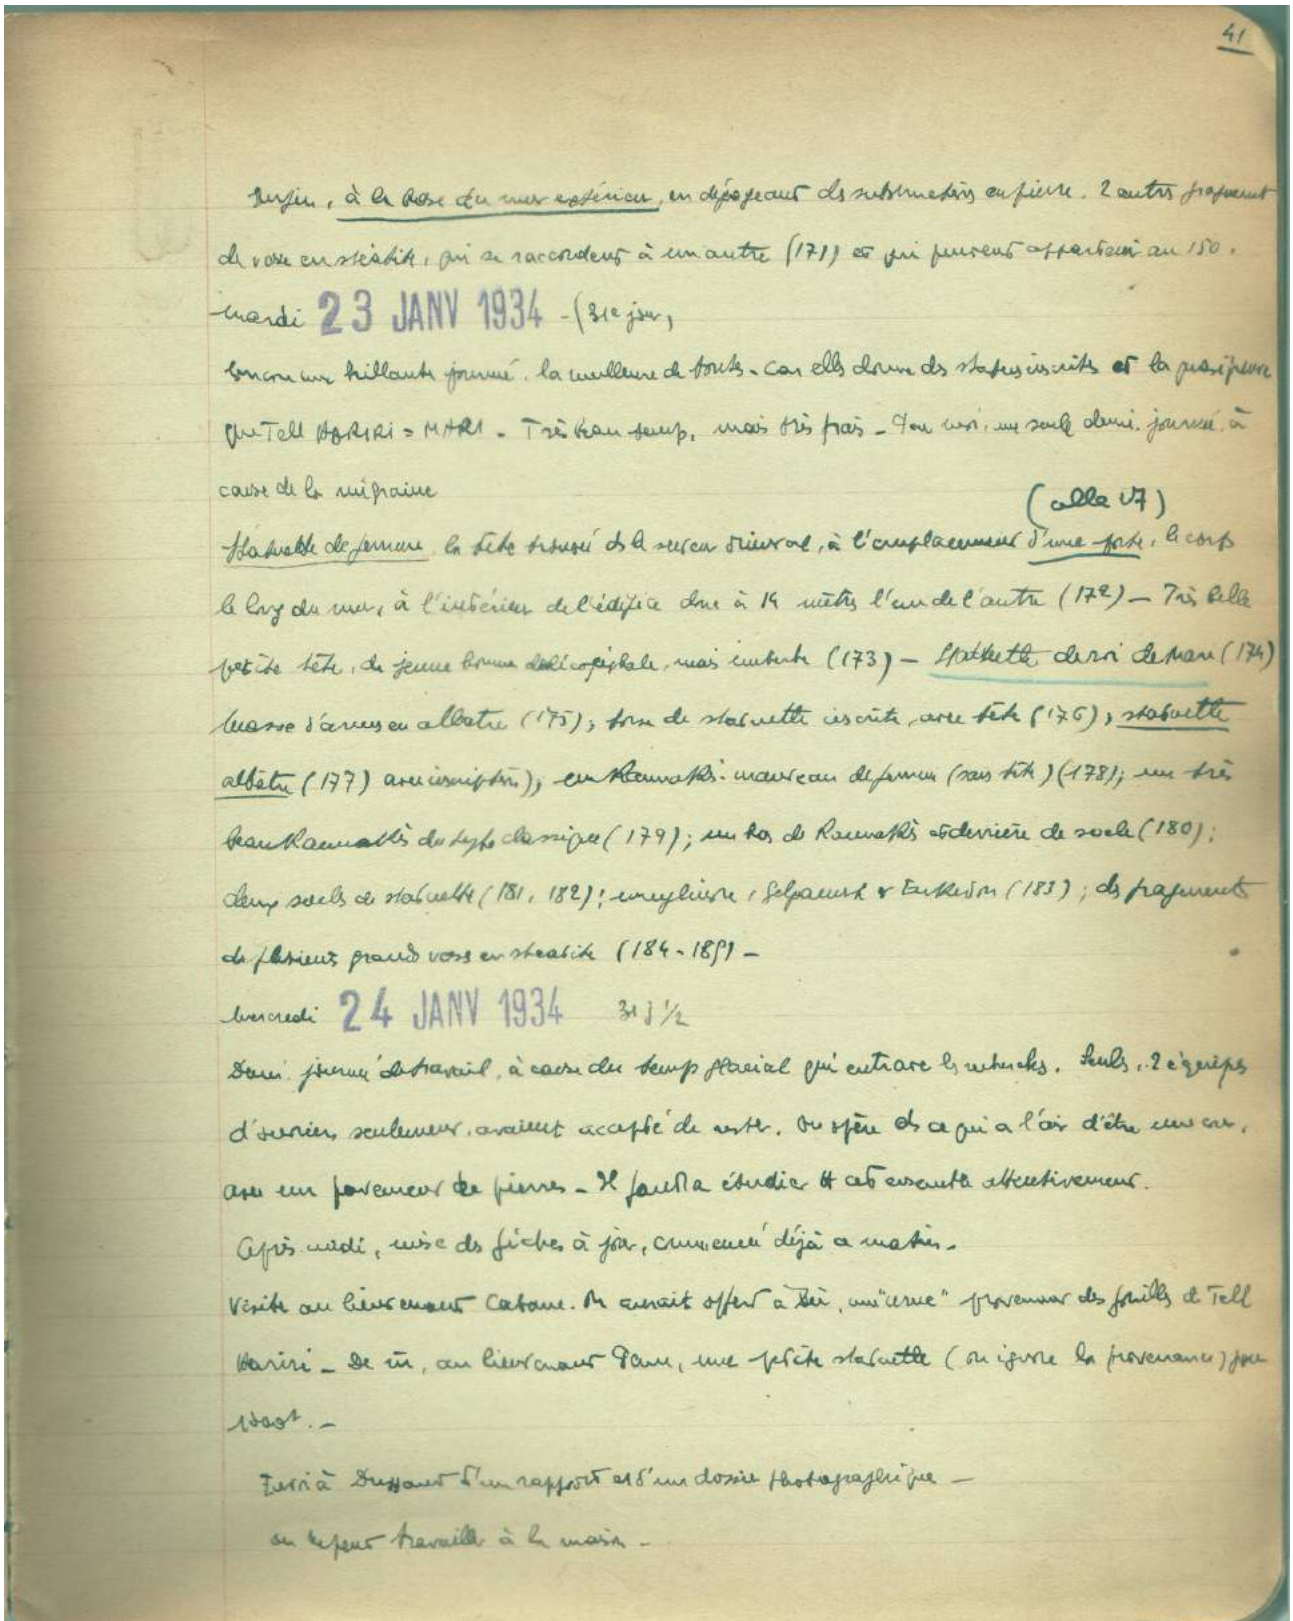 41
Enfin, à la base du mur extérieur, en dégageant ds substructions en pierre. 2 autres fragments
de vase en stéatite, qui se raccordent à un autre (171) et qui peuvent appartenir au 150.
Mardi 23 JANV 1934 - (31e jour)
Encore une brillante journée. la meilleure de toutes - Car elle donne des statues inscrites et la preuve
que Tell HARIRI = MARI - Très beau temps, mais très frais - Pour moi, une seule demi-journée, à
cause de la migraine
(salle 17)
Statuette de femme, la tête trouvée ds le secteur, à l'emplacement d'une porte, le corps
le long du mur, à l'intérieur de l'édifice donc à 14 mètres l'un de l'autre (172) - Très belle
petite tête, de jeune homme, mais imberbe (173) - Statuette de roi de Mari (174)
Masse d'armes en albatre (175); torse de statuette inscrite, avec tête (176), statuette
albâtre (177) avec inscription); un Kaunakès-manteau de femme (sans tête) (178); un très
beau Kaunakès du type classique (179); un bas de Kaunakès et derrière de socle (180);
deux socles de statuette (181, 182); un cylindre, Gilgamesh & Enkidou (183); ds fragments
de plusieurs grands vases en steatite (184-189) -
Mercredi 24 JANV 1934 31 j 1/2
Demi-journée de travail, à cause du temps glacial qui entrave ls recherches. Seuls, 2 équipes
d'ouvriers seulement, avaient accepté de rester. On opère ds ce qui a l'air d'être une cour,
avec un pavement de pierres - Il faudra étudier tt cet ensemble attentivement.
Après midi, mise ds fiches à jour, commencé déjà ce matin -
Visite au lieutenant Cabane. On aurait offert à, une "urne" provenant des fouilles de Tell
Hariri - De m, au lieutenant, une petite statuette (on ignore la provenance) pour

Envoi à Dussaud d'un rapport et d'un dossier photographique -
on ne peut travailler à la maison -